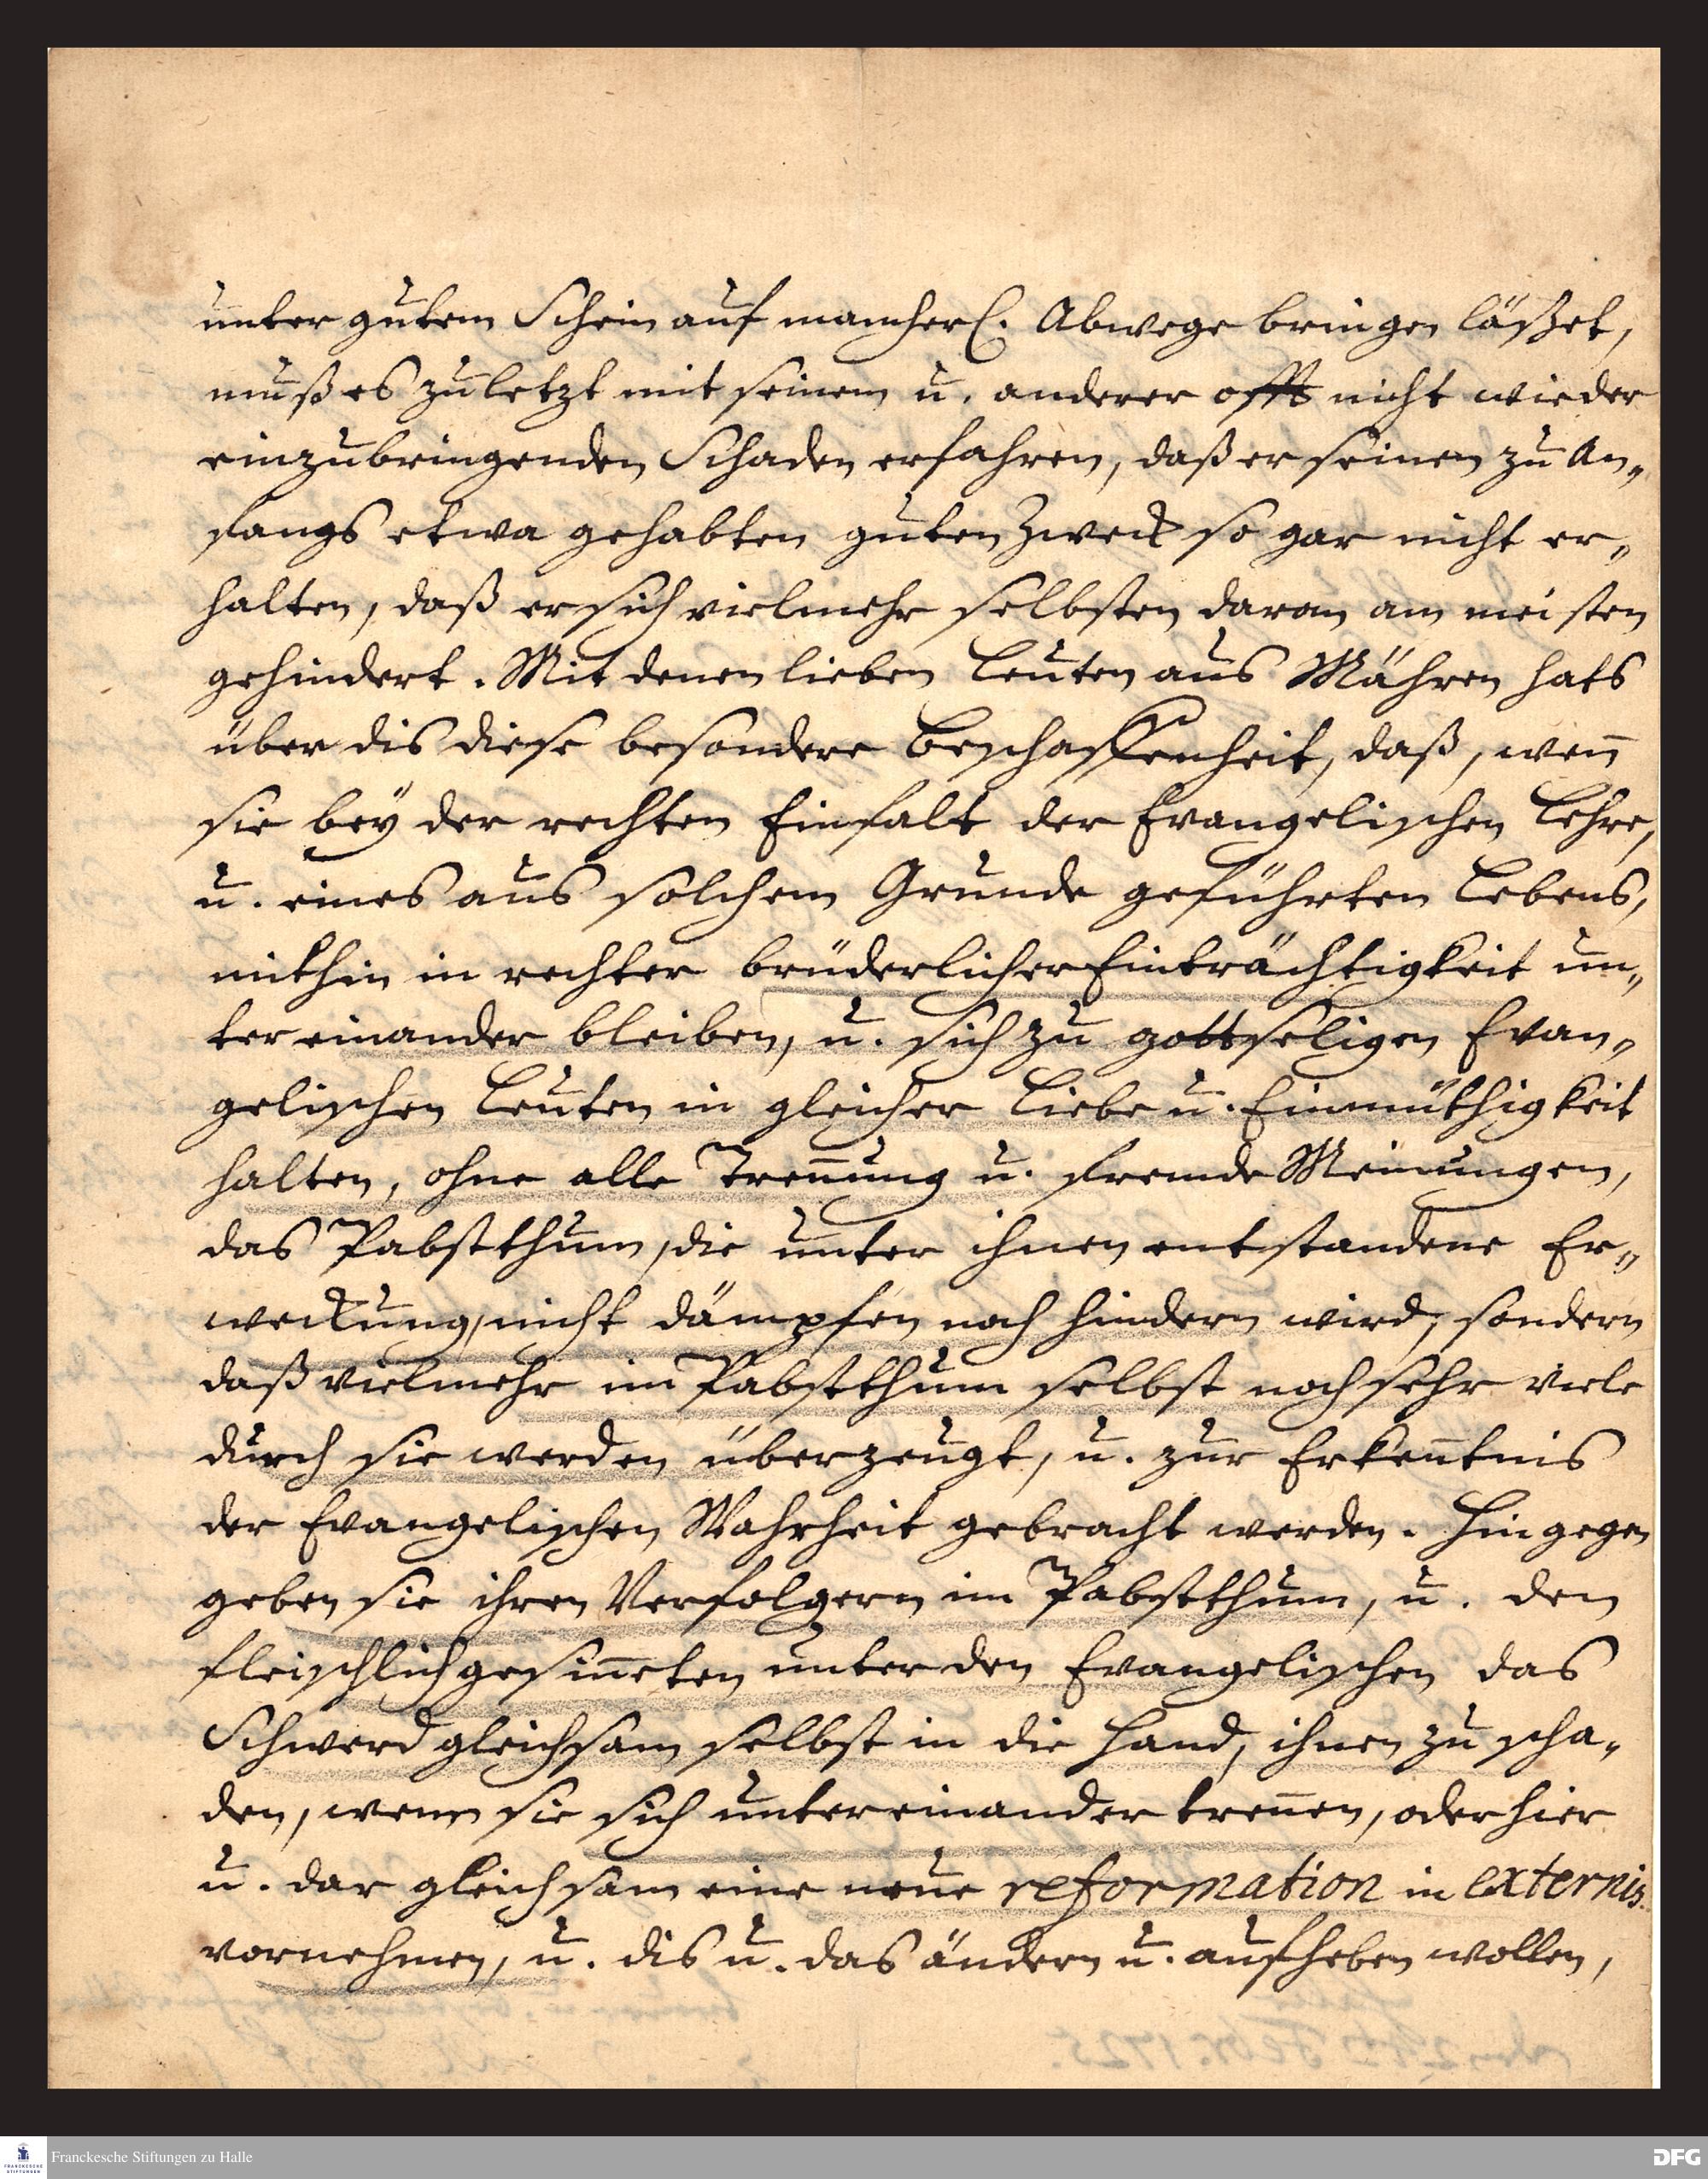 unter gutem Schein auf mancherl. Abwege bringen läßzet,
muß es zuletzt mit seinem u. anderer offt nicht wieder
einzubringenden Schaden erfahren, daß er seinen zu An„
fangs etwa gehabten guten Zweck so gar nicht er„
halten, daß er sich vielmehr selbsten daran am meisten
gehindert. Mit denen lieben Leuten aus Mähren hats
über dis diese besondere Beschaffenheit, daß, wen̄
sie bey der rechten Einfalt der Evangelischen Lehre,
u. eines aus solchem Grunde geführten Lebens,
mithin in rechter brüderlicher Einträchtigkeit un„
ter einander bleiben, u. sich zu gottseligen Evan„
gelischen Leuten in gleicher Liebe u. Einmüthigkeit
halten, ohne alle Tren̄ung u. fremde Meinungen,
das Pabstthum, die unter ihnen entstandene Er„
weckung, nicht dämpfen noch hindern wird, sondern
daß vielmehr im Pabstthum selbst noch sehr viele
durch sie werden überzeugt, u. zur Erken̄tnis
der Evangelischen Wahrheit gebracht werden. Hingegen
geben sie ihren Verfolgern im Pabstthum, u. den
fleischlich gesin̄eten unter den Evangelischen das
Schwerd gleichsam selbst in die Hand, ihnen zu scha„
den, wenn sie sich untereinander tren̄en, oder hier
u. dar gleichsam eine neue reformation in externis
vornehmen, u. dis u. das ändern u. aufheben wollen,
Franckesche Stiftungen zu Halle
DFG